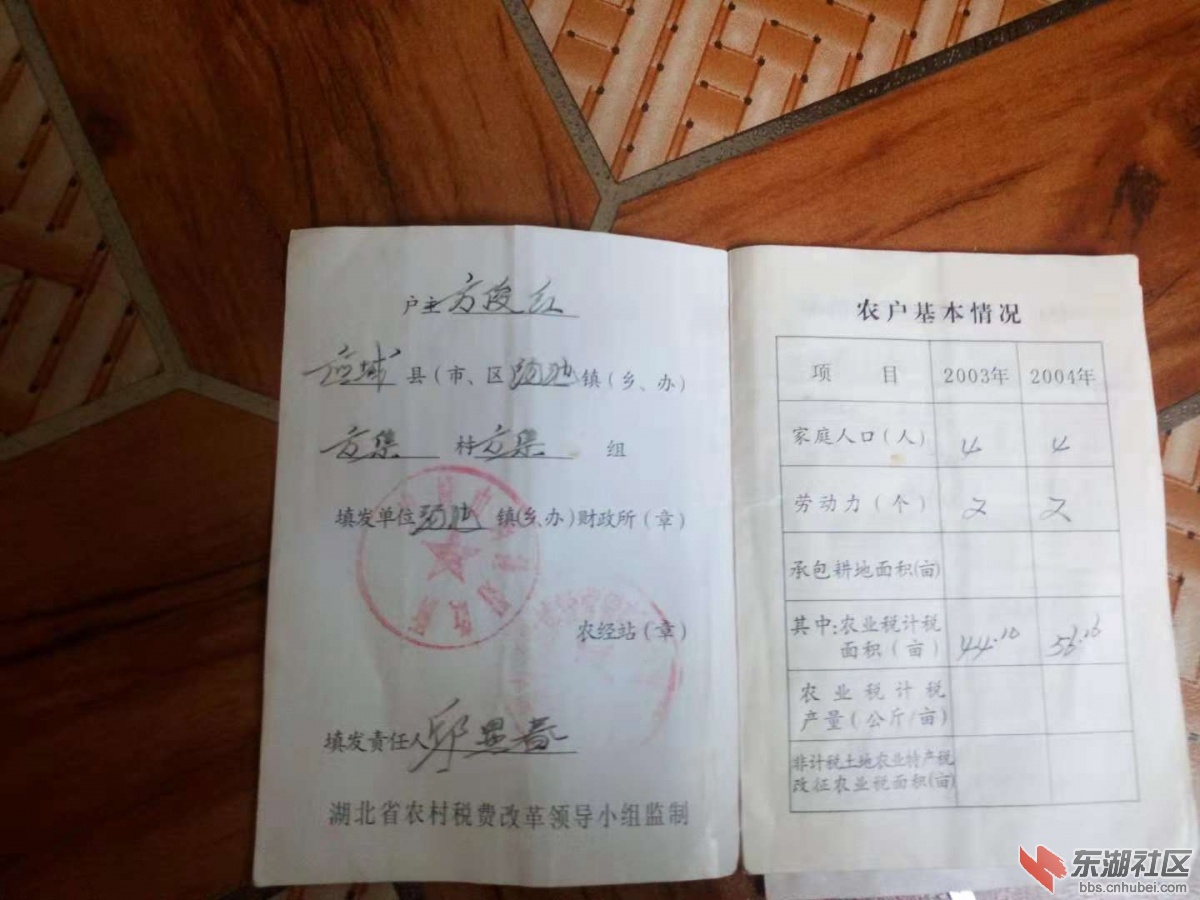 户主方俊红
应城县(市、区)杨河镇(乡、办)
方集村方集组
填发单位 镇(乡、办)财政所(章)
农经站(章)
填发责任人
湖北省农村税费改革领导小组监制
农户基本情况
项目 2003年 2004年
家庭人口(人) 4 4
劳动力(个) 2 2
承包耕地面积(亩)
其中:农业税计税
面积(亩) 44.10 56.16
农业税计税
产量(公斤/亩)
非计税土地农业特产税
改征农业税面积(亩)
东湖社区
bbs.cnhubei.com